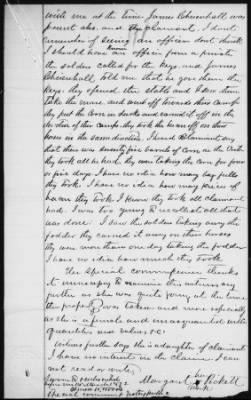 with me at the time James Chisenhall was
present also. and the claimant. I dont
remember of seeing an officer dont think
I should have known an officer from a private
the soldiers called for the keys. and James
Chisenhall told me that he gave them the
keys. they opened the stable and
take the mare. and went off towards their camp
they put the corn in sacks and carried it off in the
direction of their camp. they took the bacon off on their
horses in the same direction. I heard Claimant say
that there was seventy five barrels of corn in the Crib
they took all he had. they were taking the corn for four
or five days. I have no idea how much hay
they took. I have no idea how many pieces of
bacon they took. I know they took all claimant
had. I was too young to recollect all that
was done. I saw the soldiers taking away the
fodder they carried it away on their horses
they were more than one day taking the fodder
I have no idea how much they took
The special commissioner thinks
it unnecessary to examine this witness any
further as she was quite young at the time
the property was taken and more especially
as she is a female and unacquainted with
quantities and values &c
Witness further says she is a daughter of claimant
I have no interest in the claim. I can
not read or write
Sworn to & subscribed
Margaret her mark Pickett